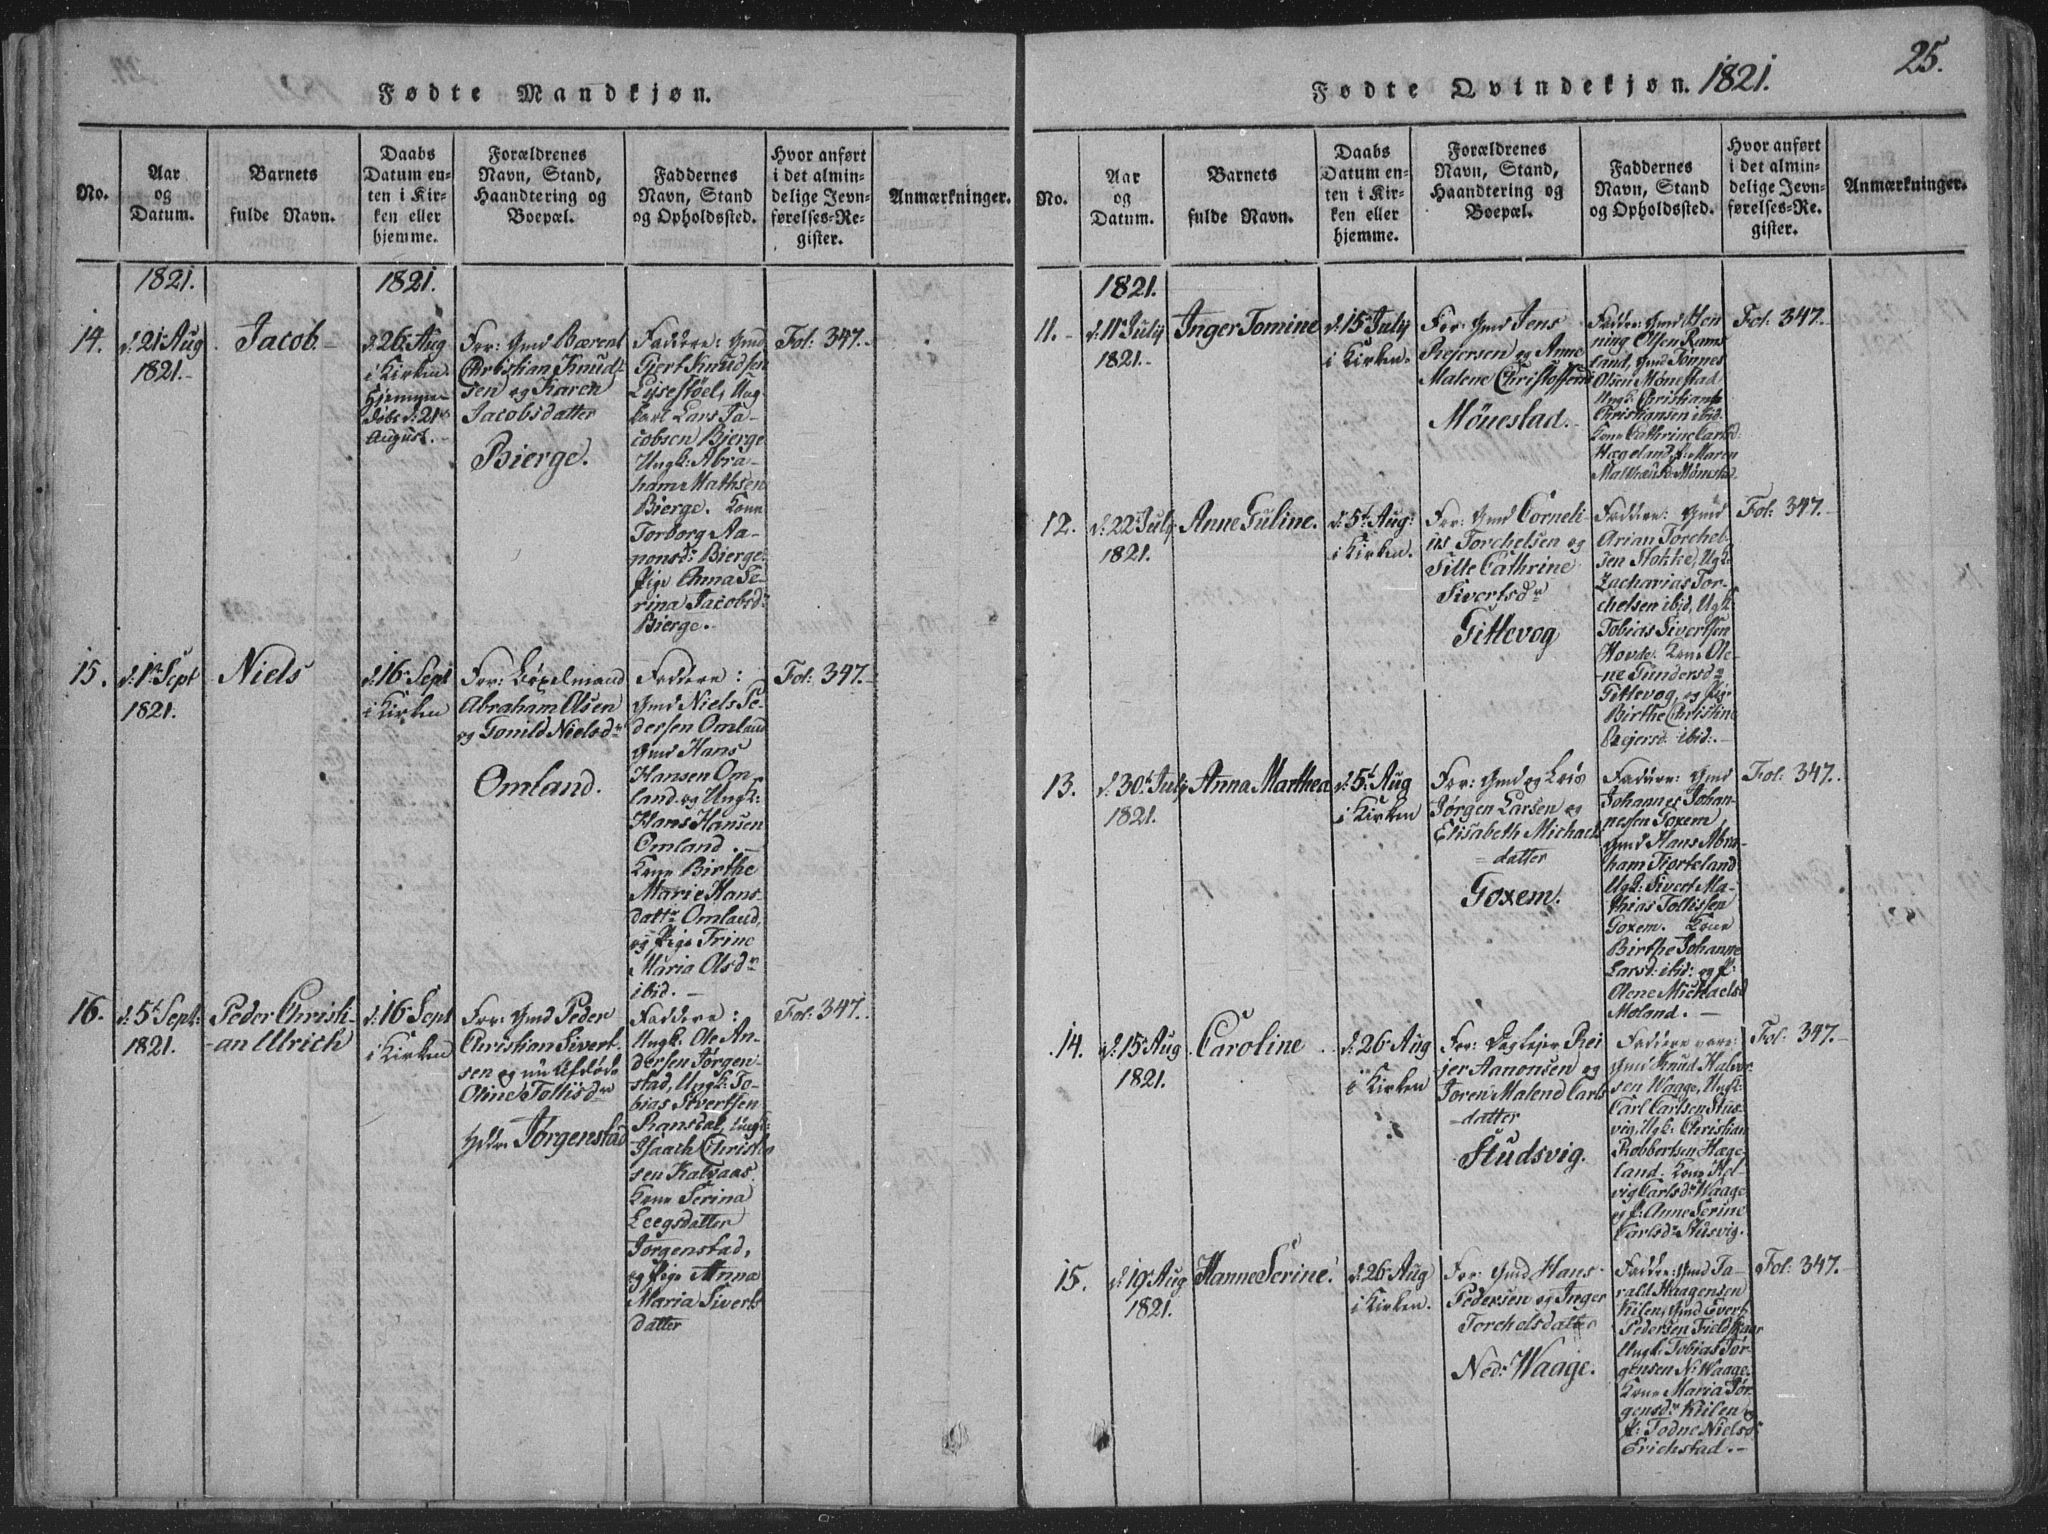 Fødte Mandkjøn.
No.
Aar
og
Datum.
Barnets
fulde Navn.
Daabs
Datum en-
ten i Kir-
ken eller
hjemme.
Forældrenes
Navn, Stand,
Haandtering og
Boepæl.
Faddernes
Navn, Stand
og Opholdssted.
Hvor anført
i det almin-
delige Jevn-
førelses-Re-
gister.
Anmærkninger.
1821.
1821.
14.
d: 21 Aug
1821.
Jacob.
d: 26 Aug
i Kirken
hjemme
døbt d: 21
August.
For: Gmd Bærent
Christian Knud-
sen og Karen
Jacobsdatter
Bierge.
Faddere: Gmd
Gjert Knudsen
Lisestøel, Ung
karl Lars Ja-
cobsen Bierge
Ungk: Abra-
ham Mathsen
Bierge. Kone
Torborg Aa-
nonsd: Bierge
Pige Anna Se-
rina Jacobsd:
Bierge.
Fol: 347.
15.
d: 1 Sept
1821.
Niels
d: 16 Sept
i Kirken
For:
Abraham Olsen
og Gonild Nielsdr
Omland.
Faddere:
Gmd Niels Pe-
dersen Omland
Gmd Hans
Hansen Om-
land og Ungk:
Hans Hansen
Omland.
Kone Birthe
Marie Hans-
dattr Omland,
og Pige Trine
Maria Olsdr
ibid.
Fol: 347.
16.
d: 5t Sept:
1821.
Peder Christi-
-an Ulrich
d: 16 Sept
i Kirken
For: Gmd Peder
Christian Sivert-
sen og nu Afdøde
Oline Tollisdr
Jørgenstad
Faddere:
Ungk: Ole An-
dersen Jørgen-
stad, Ungk: To-
bias Sivertsen
Ranstal, Ungk:
Isaach Christen
sen Kalvaas.
Kone Serina
Leegsdatter
Jørgenstad,
og Pige Anna
Maria Siverts
datter
Fol: 347.
25.
Fødte Qvindekjøn. 1821.
No.
Aar
og
Datum.
Barnets
fulde Navn.
Daabs
Datum en-
ten i Kir-
ken eller
hjemme.
Forældrenes
Navn, Stand,
Haandtering og
Boepæl.
Faddernes
Navn, Stand
og Opholdssted.
Hvor anført
i det almin-
delige Jevn-
førelses-Re-
gister.
Anmærkninger.
1821.
11.
d: 11 July
1821.
Inger Tomine
d: 15 July
i Kirken.
For: Gmd Jens
Reiersen og Anne
Malene Christoffersd
Mönestad.
Faddere: Gmd Hen
ning Olsen Rams
land, Gmd Tønnes
Olsen Mönestad,
Ungk: Christian
Christiansen ibid.
Kone Cathrine Carlsd:
Hægeland, P: Maren
Matthæusd: Mönestad
Fol: 347.
12.
d: 22 July
1821.
Anne Guline.
d: 5t Aug:
i Kirken.
For: Gmd Corneli-
us Torchelsen og
Sille Cathrine
Sivertsdr
Gittevog
Faddere: Gmd
Arian Torchel-
sen Stokke, Ugk:
Zacharias Tor-
chelsen ibid, Ugk:
Tobias Sivertsen
Hovde. Kone Ole-
ne Gundersdr
Gittevog og Pige
Birthe Christine
Reiersd: ibid.
Fol: 347.
13.
d: 30t July
1821.
Anna Marthea
d: 5t Aug
i Kirken
For: Gmd og
Jørgen Larsen og
Elisabeth Michaels
datter
Goxem.
Faddere: Gmd
Johannes Johan-
nessen Goxem,
Gmd Hans Abra-
ham Fiorteland
Ugk: Sivert Ma-
thias Tollisen
Goxem. Kone
Birthe Johanne
Larsd: ibid: og P:
Olene Michaelsd
Moland.
Fol: 347.
14.
d: 15 Aug
1821.
Caroline
d: 26 Aug
i Kirken
For: Daglejer Rei
jer Aanonsen og
Joren Malend Carls
datter
Studsvig.
Faddere vare:
Gmd Knud Halvor
sen Waage, Ungk:
Carl Carlsen Stus-
vig, Ugk: Christian
Robbertsen Hæge-
land. Kone Hel
vig Carlsdr Waage
og P: Anne Serine
Carlsdr Stusvig.
Fol: 347.
15.
d: 19t Aug
1821.
Hanne Serine.
d: 26 Aug
i Kirken.
For: Gmd Hans
Pedersen og Inger
Torchelsdatter
Ned: Waage.
Faddere: Gmd Ta-
rald Haagensen
Kilen, Gmd Evert
Pedersen Fieldskaar
Ungk: Tobias Jør-
gensen N: Waage.
Kone Maria Jør-
gensdr Kiilen og
P: Todne Nielsd:
Erichstad.
Fol: 347.